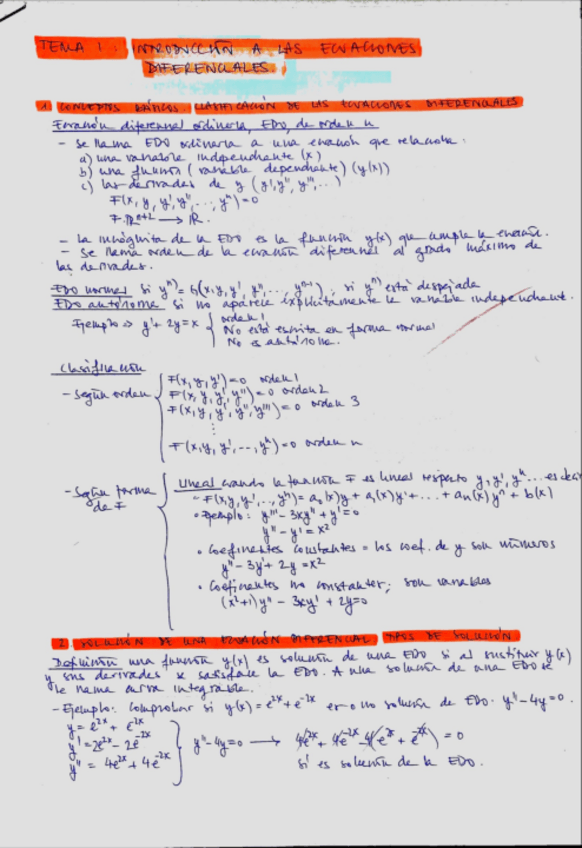 TEMA 1. INTRODUCCIÓN A LAS ECUACIONES
DIFERENCIALES
1. CONCEPTOS BÁSICOS. CLASIFICACIÓN DE LAS ECUACIONES DIFERENCIALES
Ecuación diferencial ordinaria, EDO, de orden n
- Se llama EDO ordinaria a una ecuación que relaciona:
a) una variable independiente (x)
b) una función (variable dependiente) (y(x))
c) las derivadas de y (y', y'', y''', ...)
F(x, y, y', y'', ..., yⁿ) = 0
F: ℝⁿ⁺² → ℝ.
- La incógnita de la EDO es la función y(x) que cumple la ecuación.
- Se llama orden de la ecuación diferencial al grado máximo de
las derivadas.
EDO normal si yⁿ⁾ = G(x, y, y', y'', ..., yⁿ⁻¹), si yⁿ⁾ está despejada
EDO autónoma si no aparece explícitamente la variable independiente.
Ejemplo ⇒ y' + 2y = x { orden 1
No está escrita en forma normal
No es autónoma.
Clasificación
- Según orden { F(x, y, y') = 0 orden 1
F(x, y, y', y'') = 0 orden 2
F(x, y, y', y'', y''') = 0 orden 3
⋮
F(x, y, y', ..., yⁿ) = 0 orden n
- Según forma de F { Lineal cuando la función F es lineal respecto y, y', y'' ... es decir
· F(x, y, y', .., yⁿ) = a₀(x)y + a₁(x)y' + ... + aₙ(x)yⁿ + b(x)
· Ejemplo: y''' - 3xy'' + y' = 0
y'' - y' = x²
· Coeficientes constantes = los coef. de y son números
y'' - 3y' + 2y = x²
· Coeficientes no constantes; son variables
(x²+1)y'' - 3xy' + 2y = 0
2. SOLUCIÓN DE UNA ECUACIÓN DIFERENCIAL. TIPOS DE SOLUCIÓN
Definición una función y(x) es solución de una EDO si al sustituir y(x)
y sus derivadas se satisface la EDO. A una solución de una EDO se
le llama curva integrable.
- Ejemplo: Comprobar si y(x) = e²ˣ + e⁻²ˣ es o no solución de EDO: y'' - 4y = 0.
y = e²ˣ + e⁻²ˣ
y' = 2e²ˣ - 2e⁻²ˣ
y'' = 4e²ˣ + 4e⁻²ˣ } y'' - 4y = 0 → 4e²ˣ + 4e⁻²ˣ - 4(e²ˣ + e⁻²ˣ) = 0
sí es solución de la EDO.